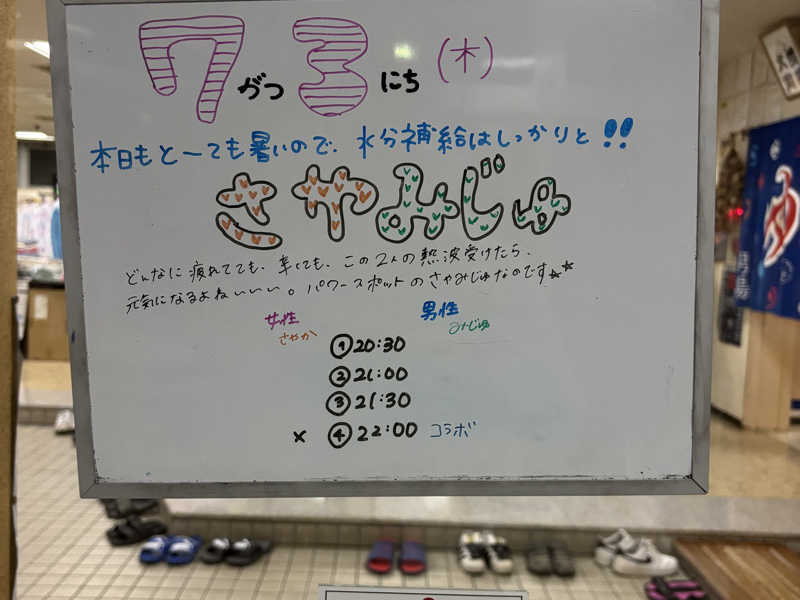 7がつ3にち(木)
本日もと〜ても暑いので、水分補給はしっかりと!!
さやみじゅ
どんなに疲れてても、辛くても、この2人の熱波受けたら、
元気になるよねぃぃぃ。パワースポットのさやみじゅなのです☆☆
女性 男性
さやか みじゅ
①20:30
②21:00
③21:30
× ④22:00 コラボ